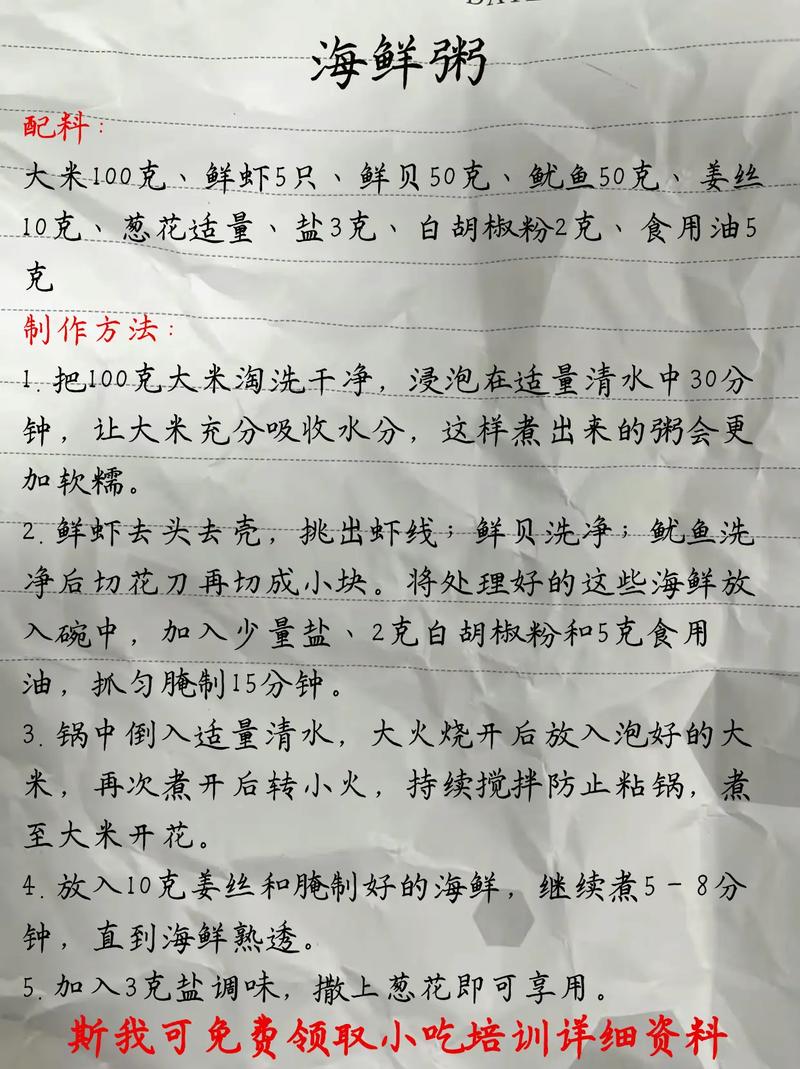 海鲜粥
配料：
大米100克、鲜虾5只、鲜贝50克、鱿鱼50克、姜丝
10克、葱花适量、盐3克、白胡椒粉2克、食用油5
克
制作方法：
1. 把100克大米淘洗干净，浸泡在适量清水中30分
钟，让大米充分吸收水分，这样煮出来的粥会更
加软糯。
2. 鲜虾去头去壳，挑出虾线；鲜贝洗净；鱿鱼洗
净后切花刀再切成小块。将处理好的这些海鲜放
入碗中，加入少量盐、2克白胡椒粉和5克食用
油，抓匀腌制15分钟。
3. 锅中倒入适量清水，大火烧开后放入泡好的大
米，再次煮开后转小火，持续搅拌防止粘锅，煮
至大米开花。
4. 放入10克姜丝和腌制好的海鲜，继续煮5-8分
钟，直到海鲜熟透。
5. 加入3克盐调味，撒上葱花即可享用。
斯我可免费领取小吃培训详细资料